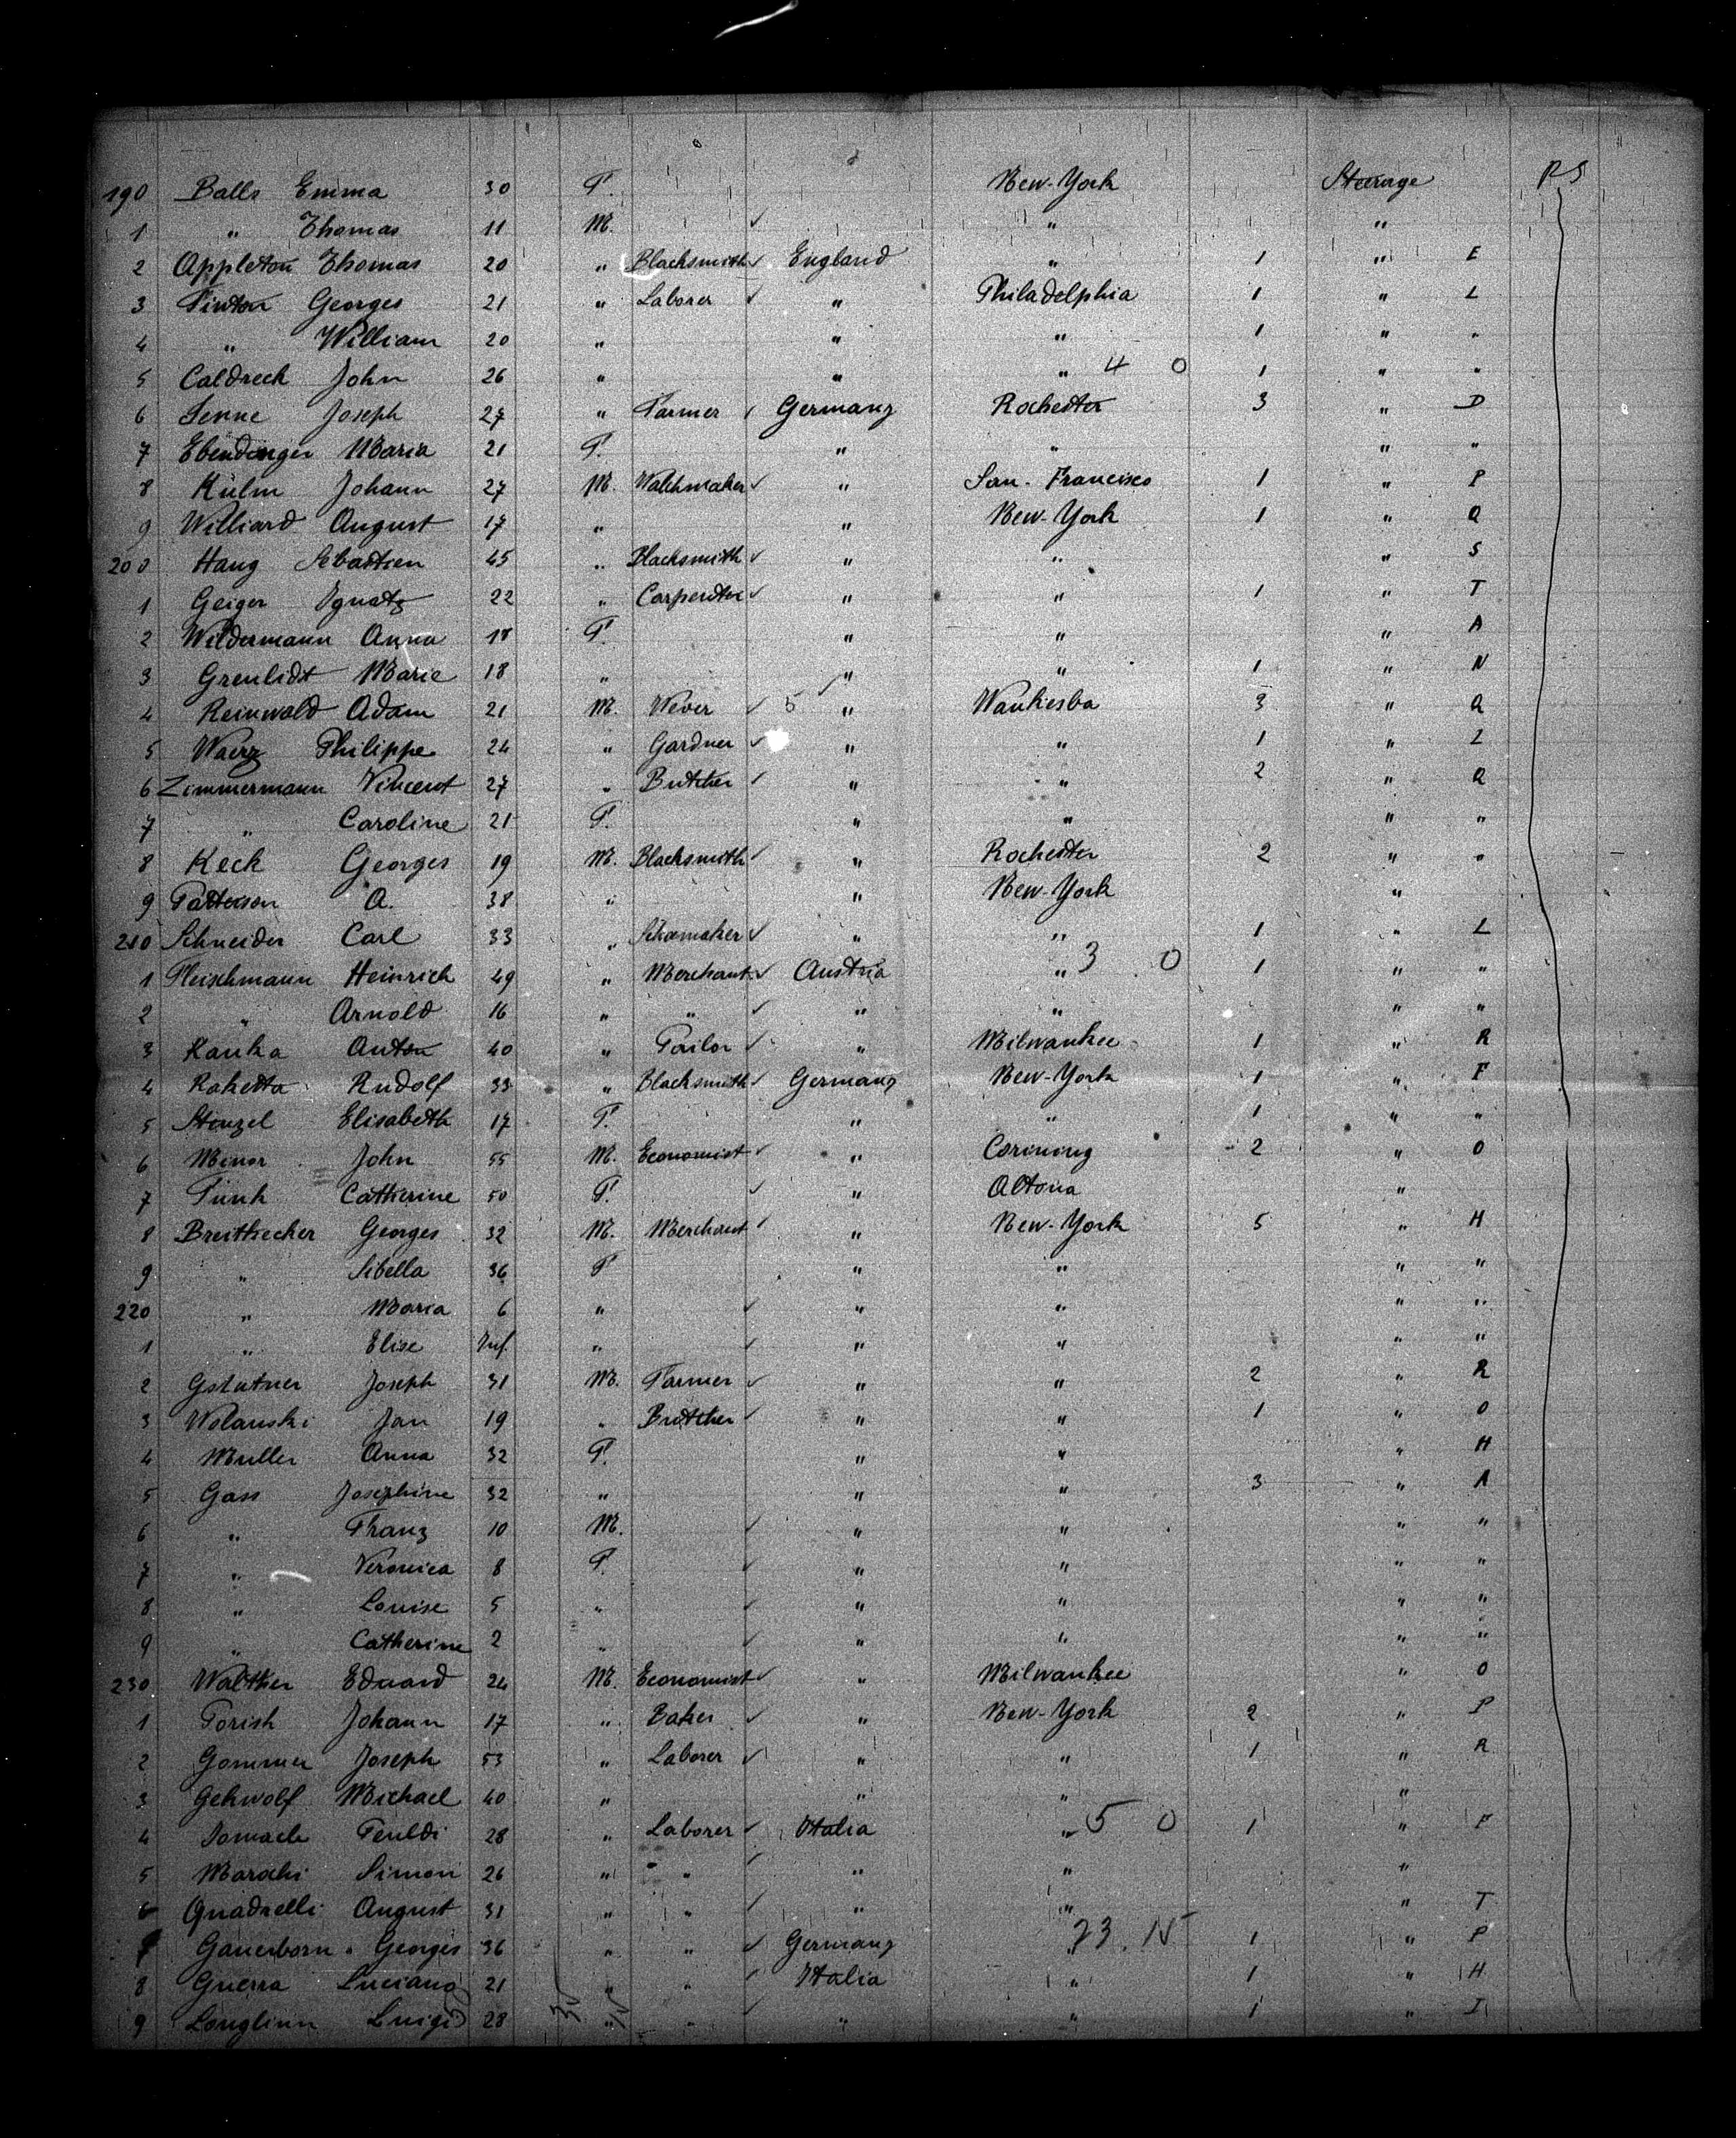 190 Balls Emma 30 F. New-York Steerage RS
1 " Thomas 11 M. ✓ " "
2 Appleton Thomas 20 " Blacksmith ✓ England " 1 " E
3 Finton Georges 21 " Laborer ✓ " Philadelphia 1 " L
4 " William 20 " " " 1 " "
5 Caldreck John 26 " " " 4 0 1 " "
6 Senne Joseph 27 " Farmer ✓ Germany Rochester 3 " D
7 Ebendinger Maria 21 F. " " " "
8 Külm Johann 27 M. Watchmaker ✓ " San-Francisco 1 " P
9 Williard August 17 " " New-York 1 " Q
200 Haug Sebastien 45 " Blacksmith ✓ " " " S
1 Geiger Ignatz 22 " Carpenter ✓ " " 1 " T
2 Wildermann Anna 18 F. " " " A
3 Grenlidt Marie 18 " " " 1 " N
4 Reinwald Adam 21 M. Wever ✓ 5 " Waukesba 3 " Q
5 Waerz Philippe 24 " Gardner ✓ " " 1 " L
6 Zimmermann Vincent 27 " Butcher ✓ " " 2 " Q
7 " Caroline 21 F. " " " "
8 Keck Georges 19 M. Blacksmith ✓ " Rochester 2 " "
9 Patterson A. 38 " " New-York "
210 Schneider Carl 33 " Schomaker ✓ " " 1 " L
1 Fleischmann Heinrich 49 " Merchant ✓ Austria " 3 0 1 " "
2 " Arnold 16 " " ✓ " " " "
3 Kauka Anton 40 " Tailor ✓ " Milwaukee 1 " R
4 Raketta Rudolf 33 " Blacksmith ✓ Germany New-York 1 " F
5 Stenzel Elisabeth 17 F. " " 1 " "
6 Minor John 55 M. Economist ✓ " Corining 2 " O
7 Funk Catherine 50 F. ✓ " Altona "
8 Breithecker Georges 32 M. Merchant ✓ " New-York 5 " H
9 " Sibella 36 F " " " "
220 " Maria 6 " ✓ " " " "
1 " Elise Inf. " ✓ " " " "
2 Gstutner Joseph 31 M. Farmer ✓ " " 2 " R
3 Wolanski Jan 19 " Butcher ✓ " " 1 " O
4 Muller Anna 32 F. " " " H
5 Gass Josephine 32 " " " 3 " A
6 " Franz 10 M. ✓ " " " "
7 " Veronica 8 F. ✓ " " " "
8 " Louise 5 " ✓ " " " "
9 " Catherine 2 " ✓ " " " "
230 Walther Eduard 24 M. Economist ✓ " Milwaukee " O
1 Porish Johann 17 " Baker ✓ " New-York 2 " P
2 Gommer Joseph 53 " Laborer ✓ " " 1 " R
3 Gehwolf Michael 40 " " " "
4 Feuldi 28 " Laborer ✓ Italia " 5 0 1 " F
5 Marachi Simon 26 " " ✓ " " "
6 Quadrelli August 31 " " ✓ " " " T
7 Gauerborn Georges 36 " " ✓ Germany " 23. N 1 " P
8 Guerra Luciano 21 " " ✓ Italia " 1 " H
9 Longlinn Luigi 28 " " ✓ " " 1 " I